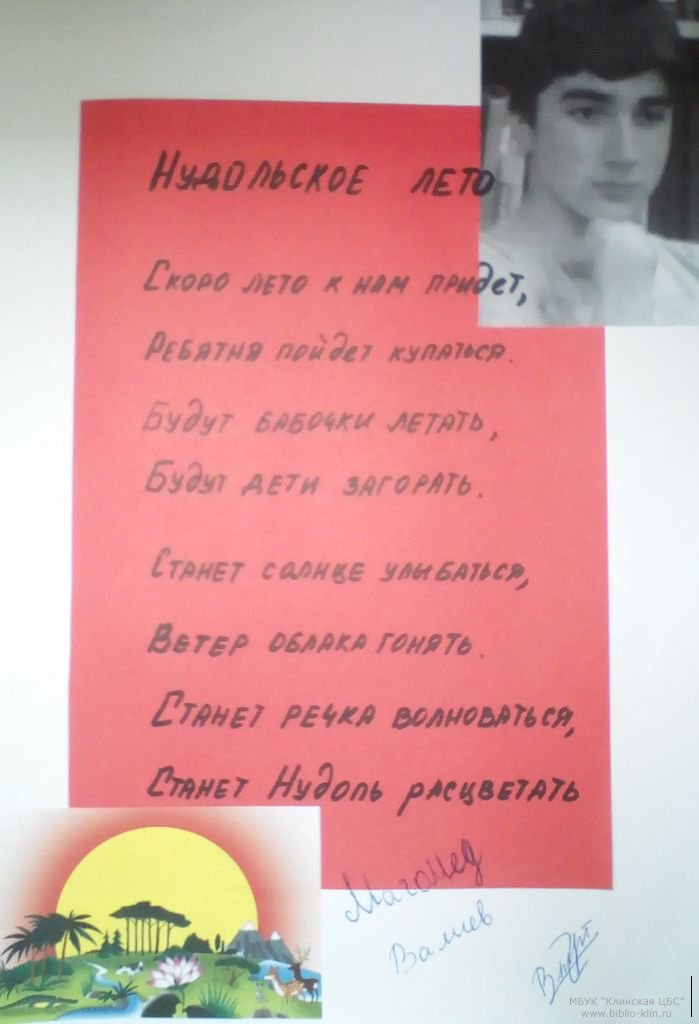 Нудольское лето
Скоро лето к нам придет,
Ребятня пойдет купаться.
Будут бабочки летать,
Будут дети загорать.
Станет солнце улыбаться,
Ветер облака гонять.
Станет речка волноваться,
Станет Нудоль расцветать
Магомед
Валиев
МБУК "Клинская ЦБС"
www.biblio-klin.ru